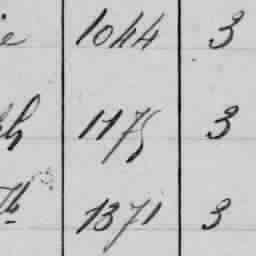 ie 1044 3
h 1175 3
th 1371 3